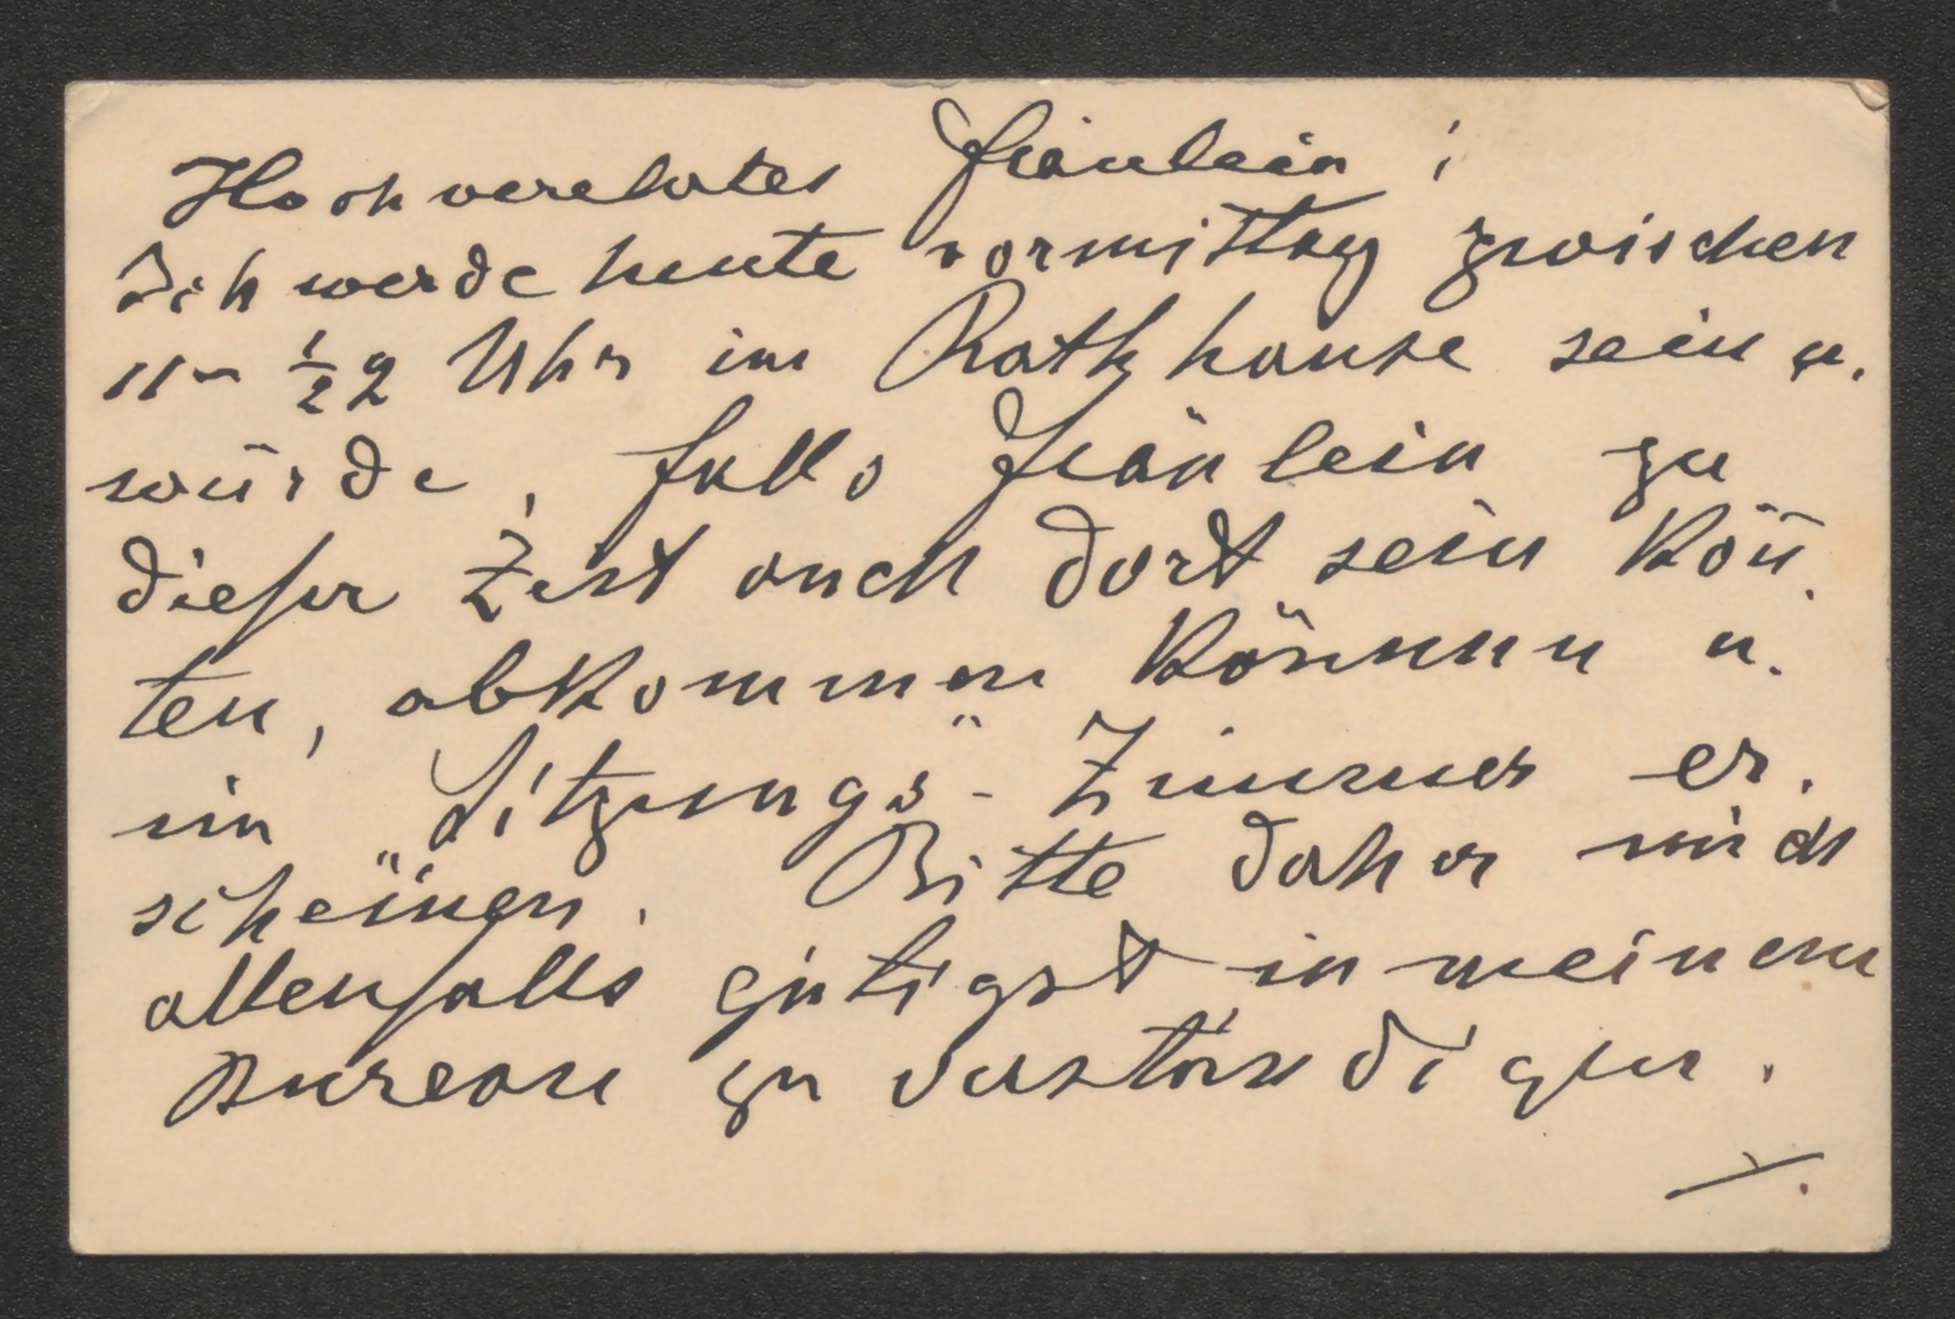 Hochverehrtes Fräulein!
Ich werde heute vormittag zwischen
11 - ½2 Uhr im Rathhause sein u.
würde, falls Fräulein zu
dieser Zeit auch dort sein könn.
ten, abkommen können u.
im "Sitzungs-Zimmer" er.
scheinen. Bitte daher mich
allenfalls gütigst in meinem
Bureau zu verständigen.